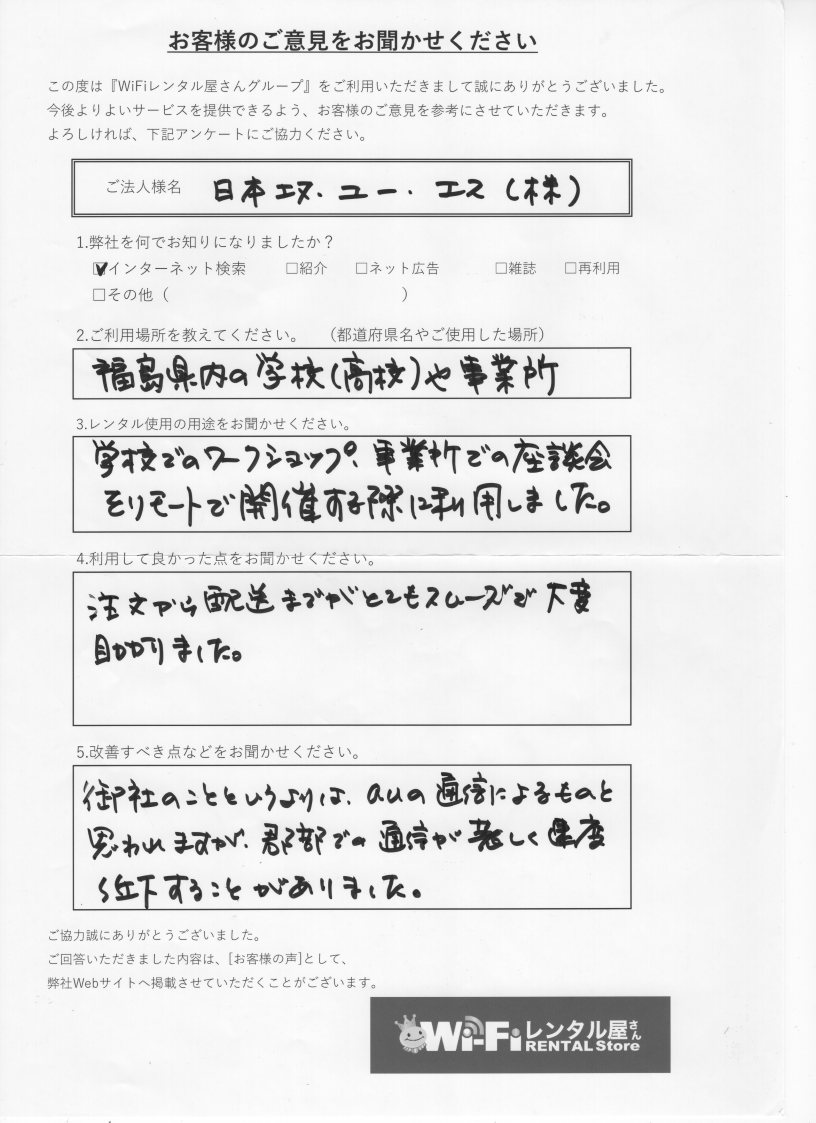 お客様のご意見をお聞かせください
この度は『WiFiレンタル屋さんグループ』をご利用いただきまして誠にありがとうございました。
今後よりよいサービスを提供できるよう、お客様のご意見を参考にさせていただきます。
よろしければ、下記アンケートにご協力ください。
ご法人様名 日本エヌ・ユー・エス(株)
1.弊社を何でお知りになりましたか？
☑インターネット検索 □紹介 □ネット広告 □雑誌 □再利用
□その他（ ）
2.ご利用場所を教えてください。 （都道府県名やご使用した場所）
福島県内の学校(高校)や事業所
3.レンタル使用の用途をお聞かせください。
学校でのワークショップ、事業所での座談会
をリモートで開催する際に利用しました。
4.利用して良かった点をお聞かせください。
注文から配送までがとてもスムーズで大変
助かりました。
5.改善すべき点などをお聞かせください。
御社のことというよりは、auの通信によるものと
思われますが、郡部での通信が著しく速度
低下することがありました。
ご協力誠にありがとうございました。
ご回答いただきました内容は、[お客様の声]として、
弊社Webサイトへ掲載させていただくことがございます。
Wi-Fiレンタル屋さん
RENTAL Store